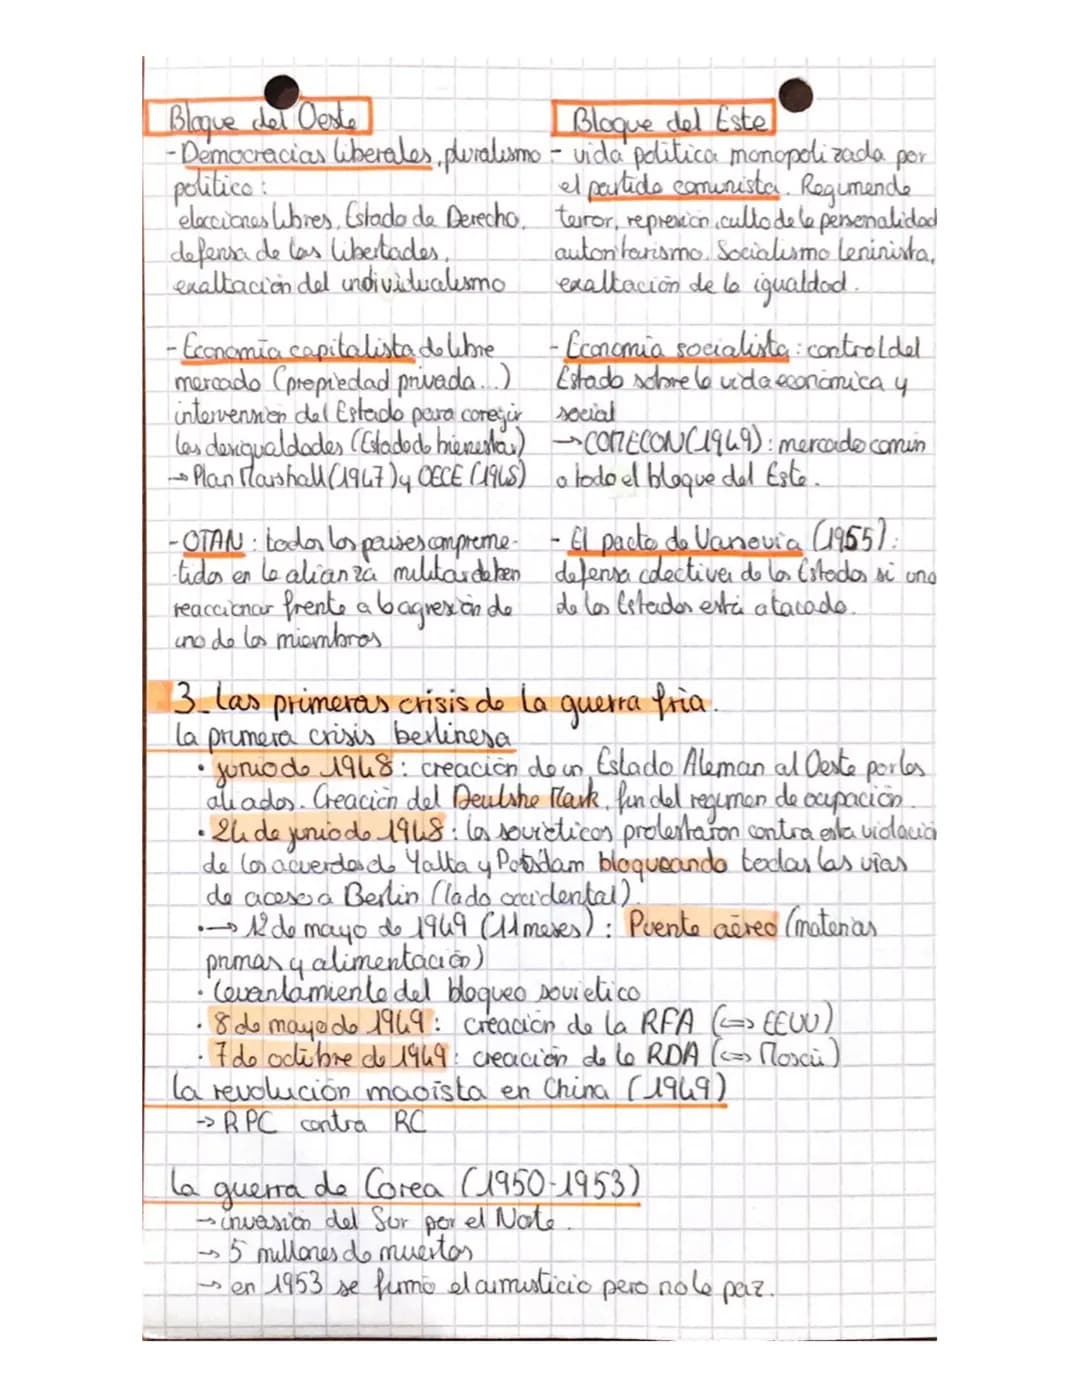 Bloque del Oeste
- Democracias liberales, pluralismo
politico :
elecciones libres, Estado de Derecho,
defensa de las libertades,
exaltación del individualismo
- Economía capitalista de libre
mercado (propiedad privada...)
intervension del Estado para coregir
las desigualdades (Estado de bienestar)
→ Plan Marshall (1947) y OECE (1948)
- OTAN : todos los paises compreme-
-tidos en la alianza militar deben
reaccionar frente a la agresión de
uno de los miembros
Bloque del Este
- vida política monopolizada por
el partido comunista. Regimen de
terror, represión, culto de la personalidad
autoritarismo. Socialismo leninista,
exaltación de la igualdad.
- Economía socialista : control del
Estado sobre la vida económica y
social
→ COMECON (1949) : mercado común
a todo el bloque del Este.
- El pacto de Varsovia (1955) :
defensa colectiva de los Estados si uno
de los Estados está atacado.
3_ Las primeras crisis de la guerra fría.
La primera crisis berlinesa
• junio de 1948 : creación de un Estado Aleman al Oeste por los
aliados. Creación del Deutshe Mark, fin del regimen de ocupación.
• 24 de junio de 1948 : los soviéticos protestaron contra esta violación
de los acuerdos de Yalta y Potsdam bloqueando todas las vías
de acceso a Berlin (lado occidental).
• → 12 de mayo de 1949 (11 meses) : Puente aéreo (materias
primas y alimentación)
• Levantamiento del bloqueo sovietico
• 8 de mayo de 1949 : creación de la RFA (⇔ EEUU)
• 7 de octubre de 1949 : creación de la RDA (⇔ Moscú)
La revolución maoísta en China (1949)
→ RPC contra RC
La guerra de Corea (1950-1953)
→ invasión del Sur por el Norte.
→ 5 millones de muertos
→ en 1953 se firmó el armisticio pero no la paz.